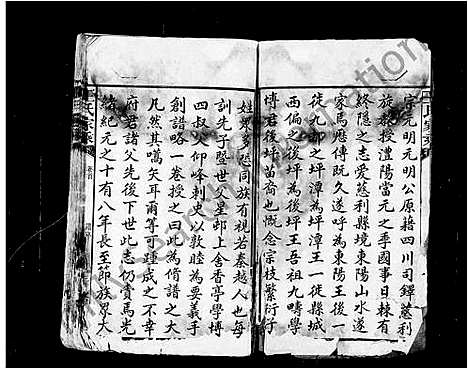 宗元明元明公原籍四川司鐸慈利
旋教授澧陽當元之季國事日棘有
終隱之志爱慈利縣境東陽山水遂
家馬厯傳既久遂呼為東陽王後一
徙九都之坪潭為坪潭王一徙縣城
西偏之後坪為後坪王吾祖九疇學
博君後坪苗裔也慨念宗枝繁衍子
姓眾多恐同族有視若秦越人也每
訓先子暨世父星卽上舍香亭學博
四叔父仰峰刺史以敦睦為要義手
創譜略一卷授之曰此為脩譜之大
凡然其嚆矢耳爾等可踵成之不幸
府君諸父先後下世此志仍賚焉光
緒紀元之十有八年長至節族眾大
王氏家乘
卷首